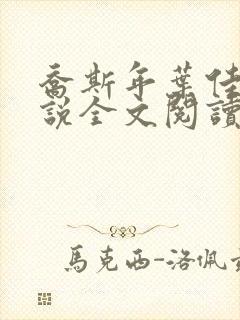 喬斯年葉佳
說全文閱讀
馬克西-洛佩